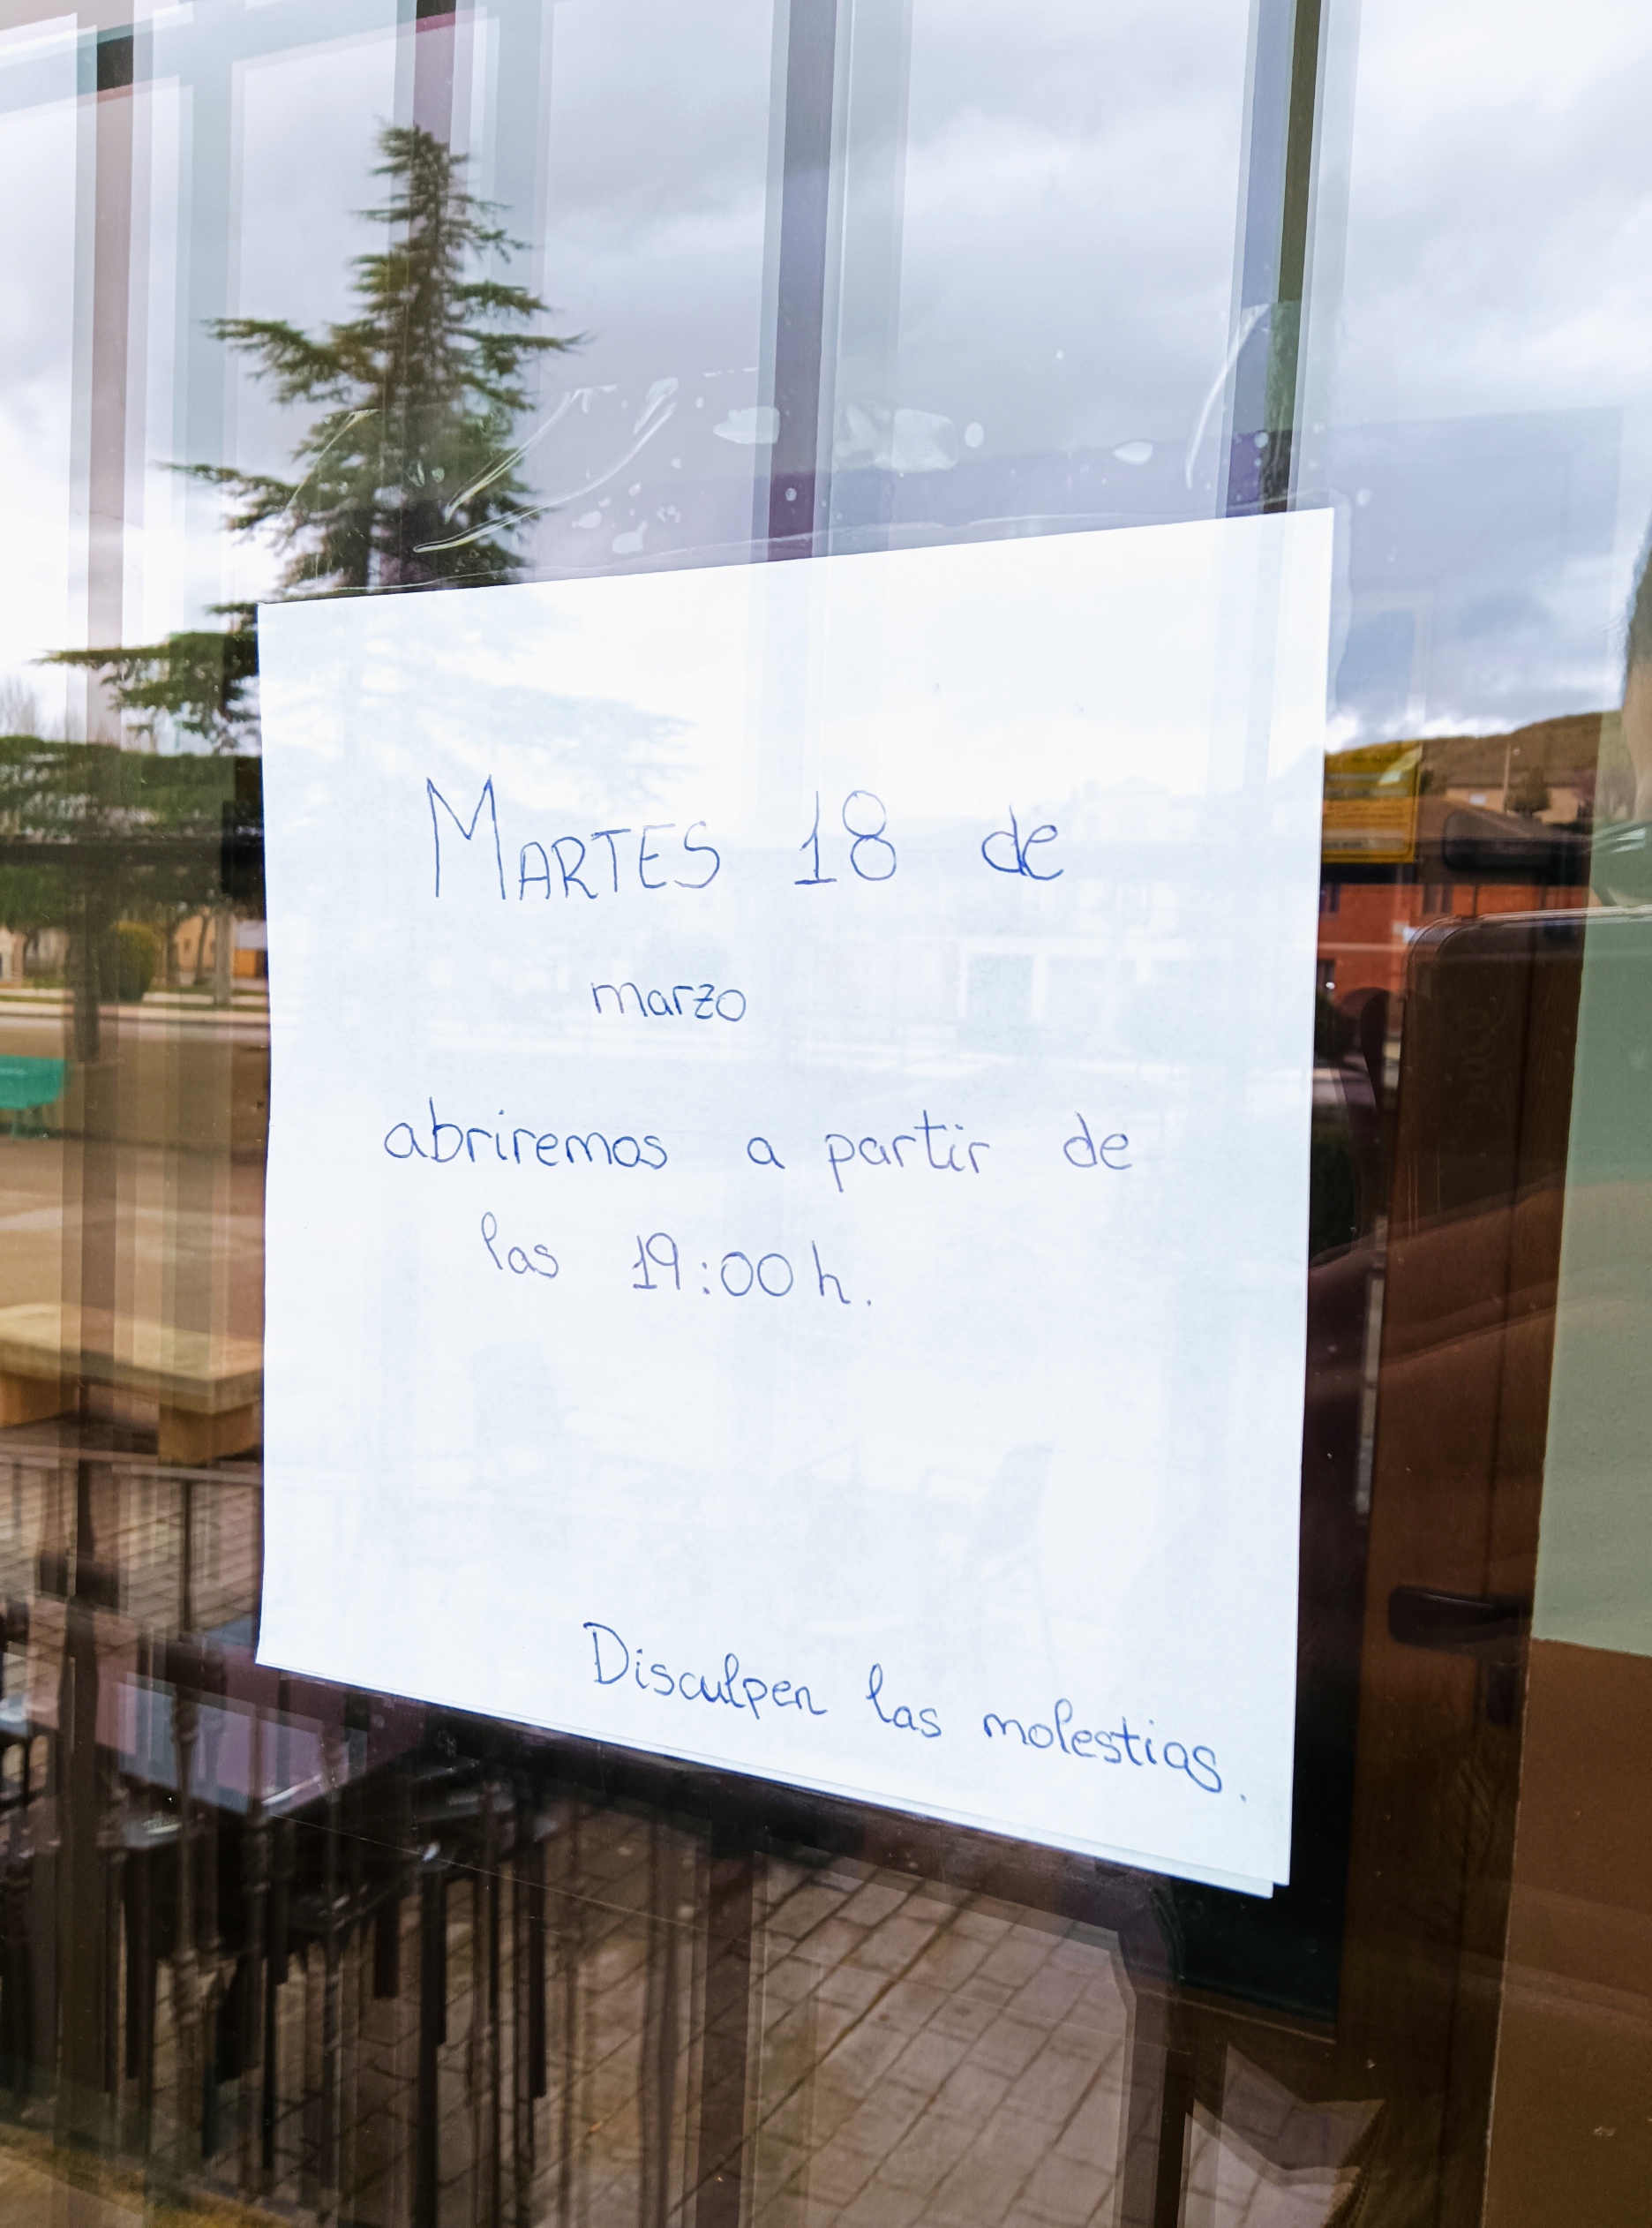 MARTES 18 de
marzo
abriremos a partir de
las 19:00 h.
Disculpen las molestias.